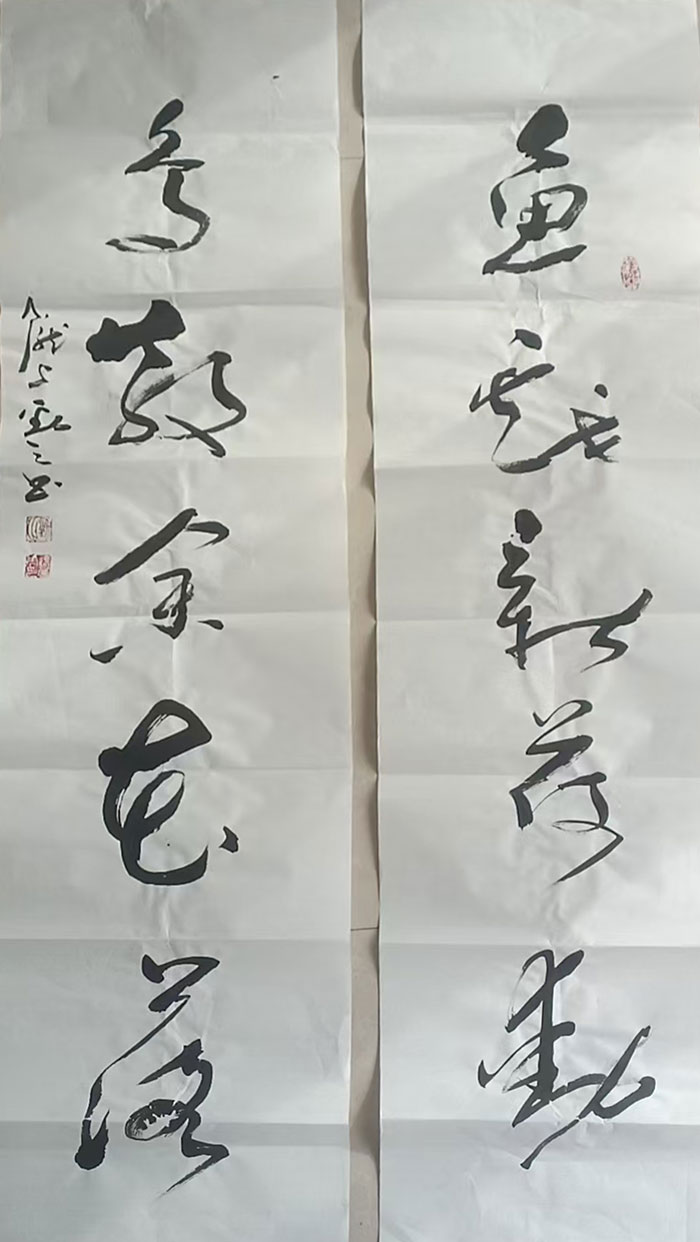 鱼戏新荷动
鸟散余花落